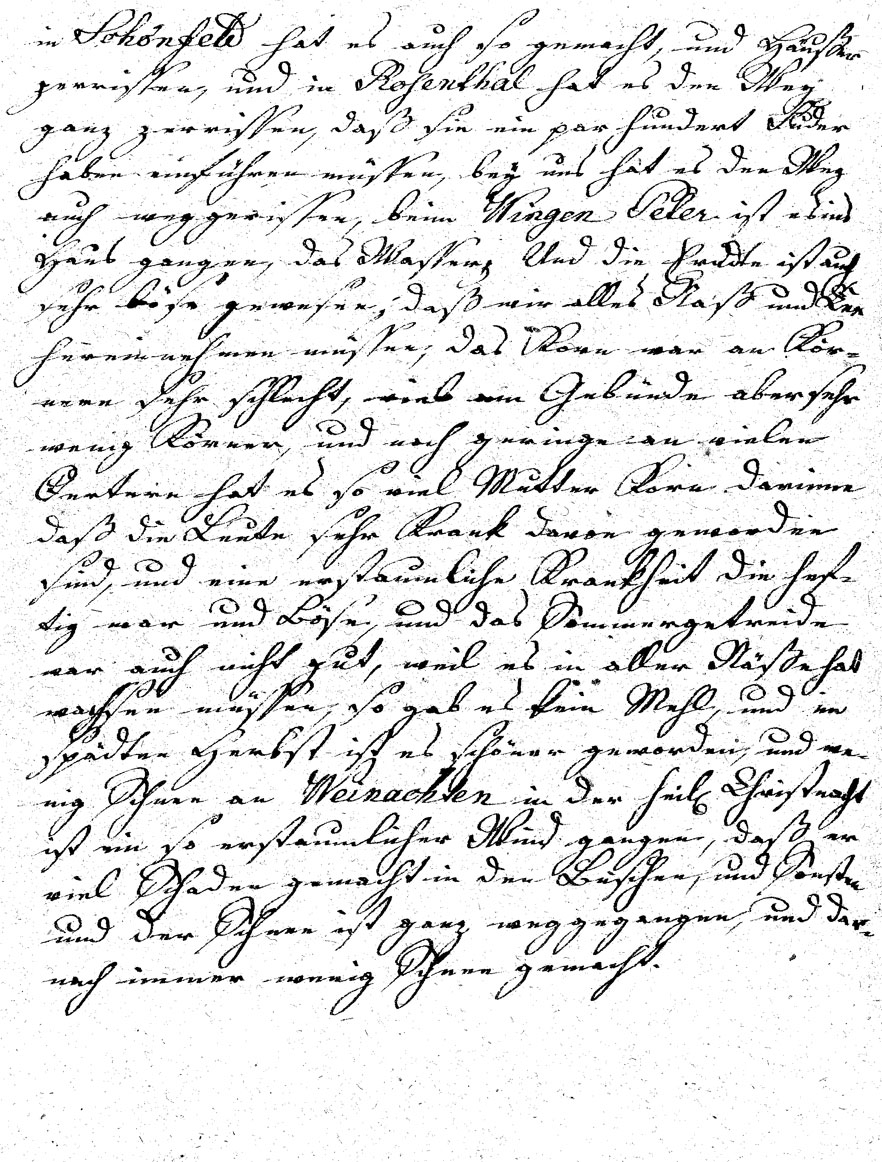 in Schönfeld hat es auch so gemacht, und Häußer
zerrissen, und in Rosenthal hat es den Weg
ganz zerrissen, daß sie ein par hundert Fuder
haben einführen müssen, bey uns hat es den Weg
auch weggerissen, beim Wingen Peter ist es ins
Haus gangen, das Wasser, Und die Erndte ist auch
sehr böse gewesen, daß wir alles Naß und
hereinnehmen müssen, das Korn war an Kör-
nern sehr schlecht, viel am Gebünde aber sehr
wenig Körner, und noch geringe an vielen
Oertern hat es so viel Mutter Korn darinne
daß die Leute sehr Krank davon geworden
sind, und eine erstaunliche Krankheit die hef-
tig war und Böse, und das Sommergetreide
war auch nicht gut, weil es in aller Näße hat
wachsen müssen, so gab es kein Mehl, und im
spädten Herbst ist es schöner geworden, und we-
nig Schnee an Weinachten in der heil Christnacht
ist ein so erstaunlicher Wind gangen, daß er
viel Schaden gemacht in den Büschen, und Sonsten
und der Schnee ist ganz weggegangen, und dar-
nach immer wenig Schnee gemacht.